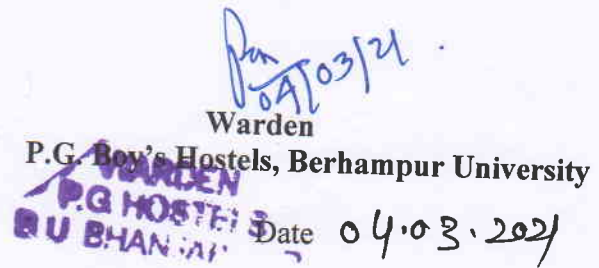 04/03/21.
Warden
P.G. Boy's Hostels, Berhampur University
WARDEN
P.G HOSTELS
B U BHAN
Date 04.03.2021